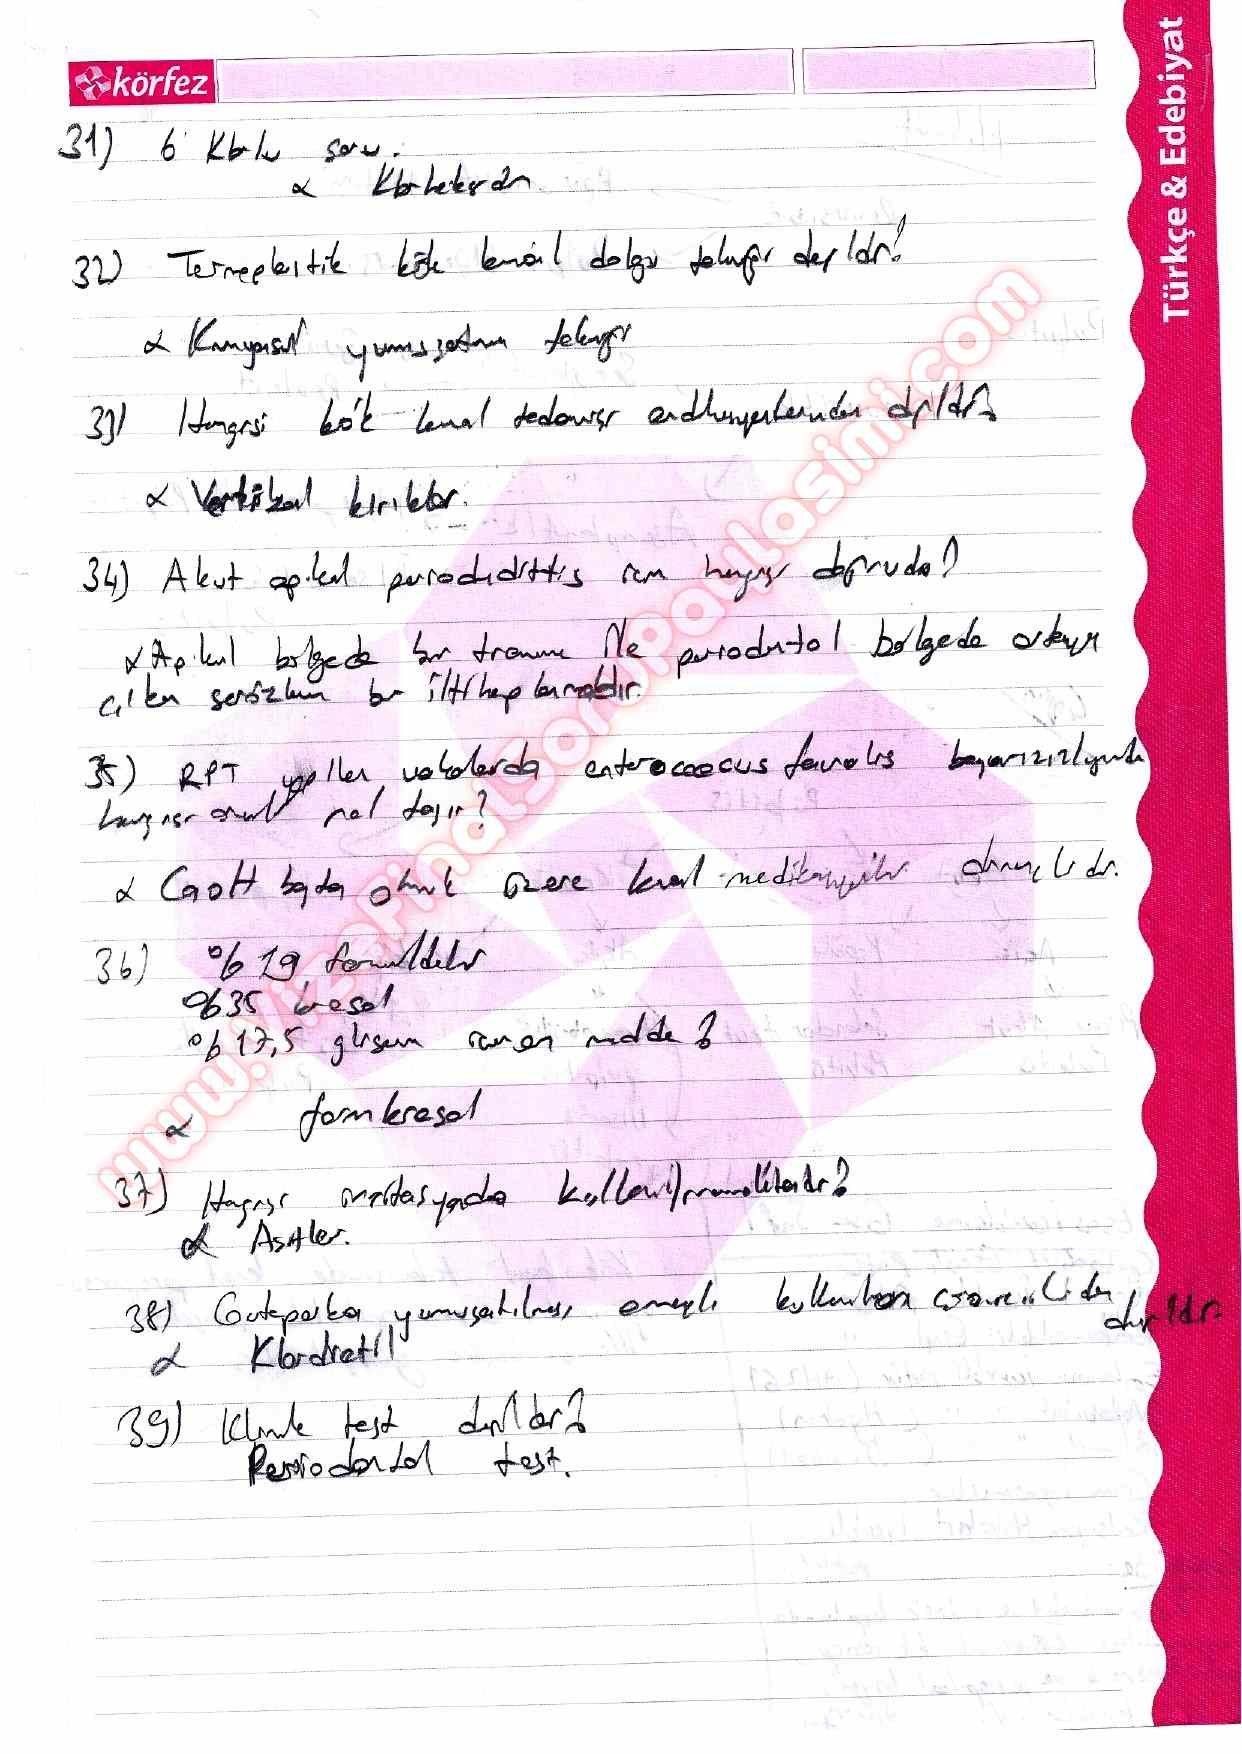 körfez
Türkçe & Edebiyat
31) 6 Klorlu soru.
α Klorheksidin
32) Termoplastik kök kanal dolgu tekniği değildir?
α Kimyasal yumuşatma tekniği
33) Hangisi kök kanal tedavisi endikasyonlarından değildir?
α Vertikal kırıklar.
34) Akut apikal periodiditis için hangisi doğrudur?
α Apikal bölgede bir travma ile periodontal bölgede ortaya
çıkan seröz bir iltihaplanmadır.
35) RPT vakalarda enterococcus faecalis başarısızlığında
hangisi rol taşır?
α CaOH başta olmak üzere kanal medikamanları dirençlidir.
36) %19 formaldehit
%35 kresol
%17,5 gliserin içeren madde?
α formkresol
37) Hangisi irritasyonda kullanılmamaktadır?
α Asitler.
38) Gutaperka yumuşatılması amaçlı kullanılan çözücülerden değildir.
α Kloretil
39) Klinik test değildir?
Periodontal test.
www.VizeFinalSoruPaylasimi.com